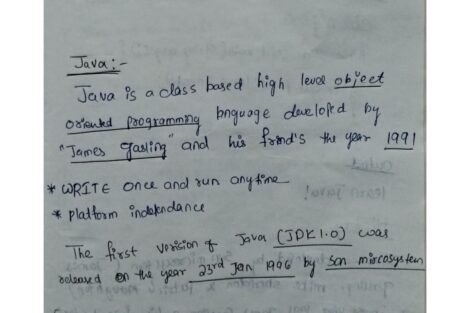 Java:-
Java is a class based high level object
oriented programming language developed by
"James Gasling" and his frind's the year 1991
* WRITE once and run anytime
* platform indepndance
The first version of Java (JDK1.0) was
released on the year 23rd Jan 1996 by san mircosystem